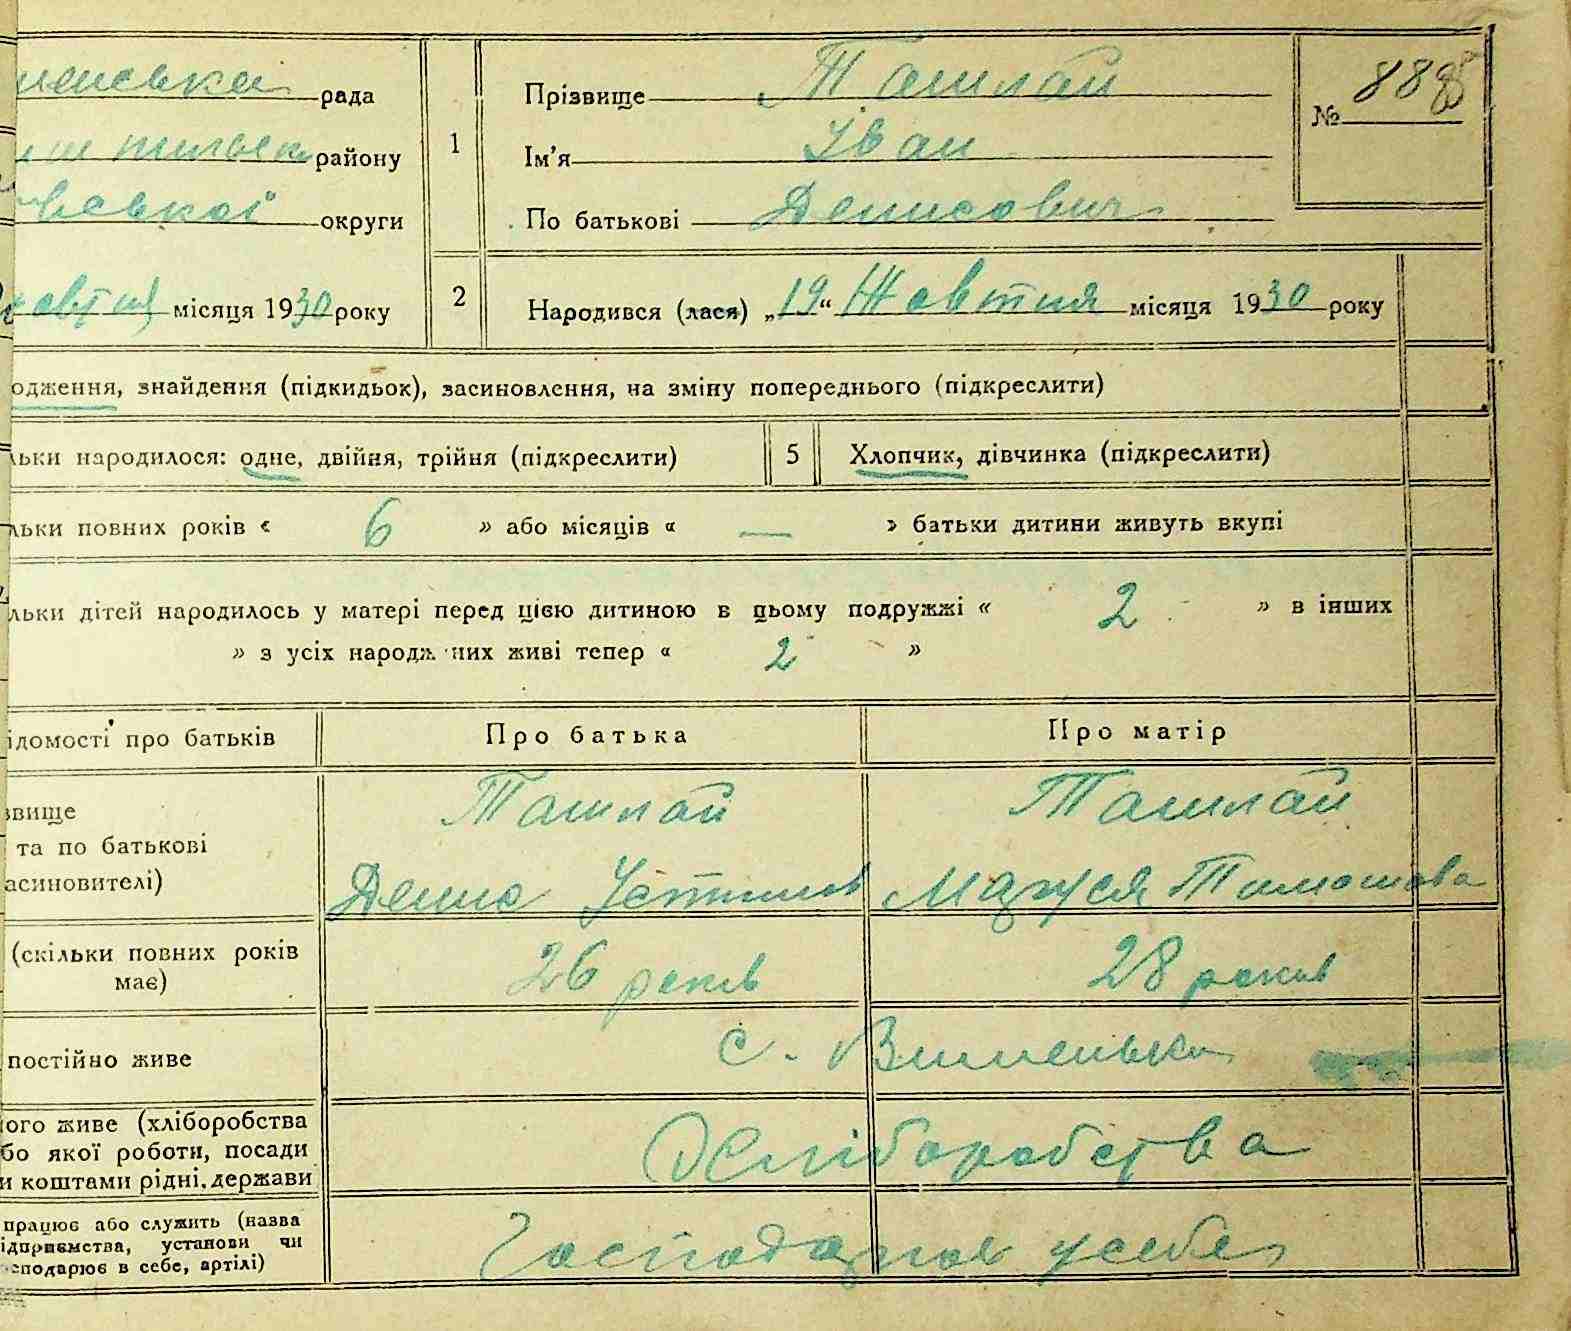 менська рада
району
вської округи
жовтня місяця 1930 року
1
Прізвище Ташлай
Ім'я Іван
По батькові Денисович
№ 888
2
Народився (лася) „19“ Жовтня місяця 1930 року
одження, знайдення (підкидьок), засиновлення, на зміну попереднього (підкреслити)
льки народилося: одне, двійня, трійня (підкреслити)
5
Хлопчик, дівчинка (підкреслити)
льки повних років « 6 » або місяців « — » батьки дитини живуть вкупі
льки дітей народилось у матері перед цією дитиною в цьому подружжі « 2 » в інших
» з усіх народжених живі тепер « 2 »
ідомості про батьків
Про батька
Про матір
звище
та по батькові
асиновителі)
Ташлай
Денис Устимов
Ташлай
Маруся Тимошова
(скільки повних років
має)
26 років
28 років
постійно живе
с. Вишеньки
ого живе (хліборобства
бо якої роботи, посади
и коштами рідні, держави
Хліборобства
працює або служить (назва
ідприємства, установи чи
сподарює в себе, артілі)
Господарює у себе